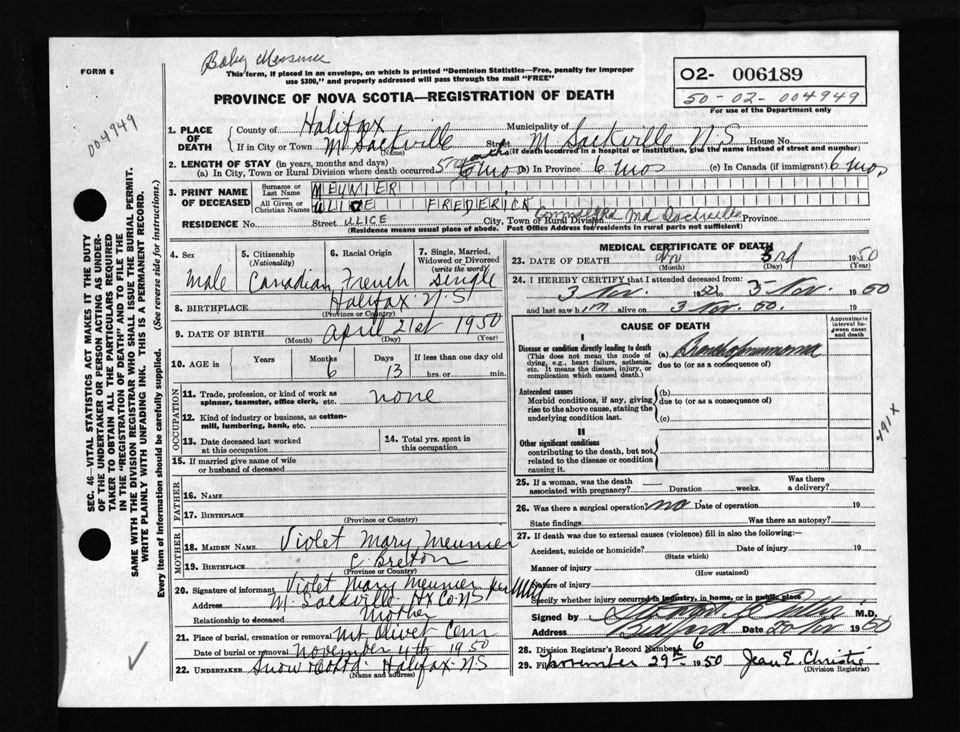 FORM 6
Baby
This form, if placed in an envelope, on which is printed "Dominion Statistics—Free, penalty for improper
use $300," and properly addressed will pass through the mail "FREE"
PROVINCE OF NOVA SCOTIA—REGISTRATION OF DEATH
O2- 006189
50-02-004949
For use of the Department only
004949
SEC. 46—VITAL STATISTICS ACT MAKES IT THE DUTY
OF THE UNDERTAKER OR PERSON ACTING AS UNDER-
TAKER TO OBTAIN ALL THE PARTICULARS REQUIRED
IN THE "REGISTRATION OF DEATH" AND TO FILE THE
SAME WITH THE DIVISION REGISTRAR WHO SHALL ISSUE THE BURIAL PERMIT.
WRITE PLAINLY WITH UNFADING INK. THIS IS A PERMANENT RECORD.
Every item of Information should be carefully supplied. (See reverse side for instructions.)
1. PLACE OF DEATH
County of Halifax Municipality of
If in City or Town M Sackville Street M. Sackville N.S House No.
(Name) (If death occurred in a hospital or institution, give the name instead of street and number)
2. LENGTH OF STAY (in years, months and days)
(a) In City, Town or Rural Division where death occurred 6 mo (b) In Province 6 mos (c) In Canada (if immigrant) 6 mos
3. PRINT NAME OF DECEASED
Surname or Last Name MEUNIER
All Given or Christian Names FREDERICK
RESIDENCE No. Street ULICE City, Town or Rural Division Sackville Province
(Residence means usual place of abode. Post Office Address for residents in rural parts not sufficient)
4. Sex Male
5. Citizenship (Nationality) Canadian
6. Racial Origin French
7. Single, Married, Widowed or Divorced (write the word) Single
8. BIRTHPLACE Halifax N.S
(Province or Country)
9. DATE OF BIRTH April 21st 1950
(Month) (Day) (Year)
10. AGE in Years Months 6 Days 13 If less than one day old hrs. or min.
OCCUPATION
11. Trade, profession, or kind of work as spinner, teamster, office clerk, etc. none
12. Kind of industry or business, as cotton-mill, lumbering, bank, etc.
13. Date deceased last worked at this occupation
14. Total yrs. spent in this occupation
15. If married give name of wife or husband of deceased
FATHER
16. NAME
17. BIRTHPLACE
(Province or Country)
MOTHER
18. MAIDEN NAME Violet Mary Meunier
19. BIRTHPLACE C Breton
(Province or Country)
20. Signature of informant Violet Mary Meunier per
Address M. Sackville Hx Co. N S
Relationship to deceased Mother
21. Place of burial, cremation or removal Mt Olivet Cem
Date of burial or removal November 4th 1950
22. UNDERTAKER Snow & Co Ltd. Halifax N.S
(Name and address)
MEDICAL CERTIFICATE OF DEATH
23. DATE OF DEATH Nov 3rd 1950
(Month) (Day) (Year)
24. I HEREBY CERTIFY that I attended deceased from:
3 Nov. 1950 to 3 Nov. 1950
and last saw him alive on 3 Nov. 50. 19
CAUSE OF DEATH
Approximate interval between onset and death
I
Disease or condition directly leading to death
(This does not mean the mode of dying, e.g., heart failure, asthenia, etc. It means the disease, injury, or complication which caused death.)
(a) Bronchopneumonia
due to (or as a consequence of)
Antecedent causes
Morbid conditions, if any, giving rise to the above cause, stating the underlying condition last.
(b)
due to (or as a consequence of)
(c)
II
Other significant conditions contributing to the death, but not related to the disease or condition causing it.
491 X
25. If a woman, was the death associated with pregnancy? — Duration weeks. Was there a delivery?
26. Was there a surgical operation? no Date of operation 19
State findings Was there an autopsy?
27. If death was due to external causes (violence) fill in also the following:—
Accident, suicide or homicide? Date of injury 19
(State which)
Manner of injury
(How sustained)
Nature of injury
Specify whether injury occurred in industry, in home, or in public place
Signed by M.D.
Address Bedford Date 20 Nov 1950
28. Division Registrar's Record Number 6
29. Filed November 29th 1950 Jean E. Christie
(Division Registrar)